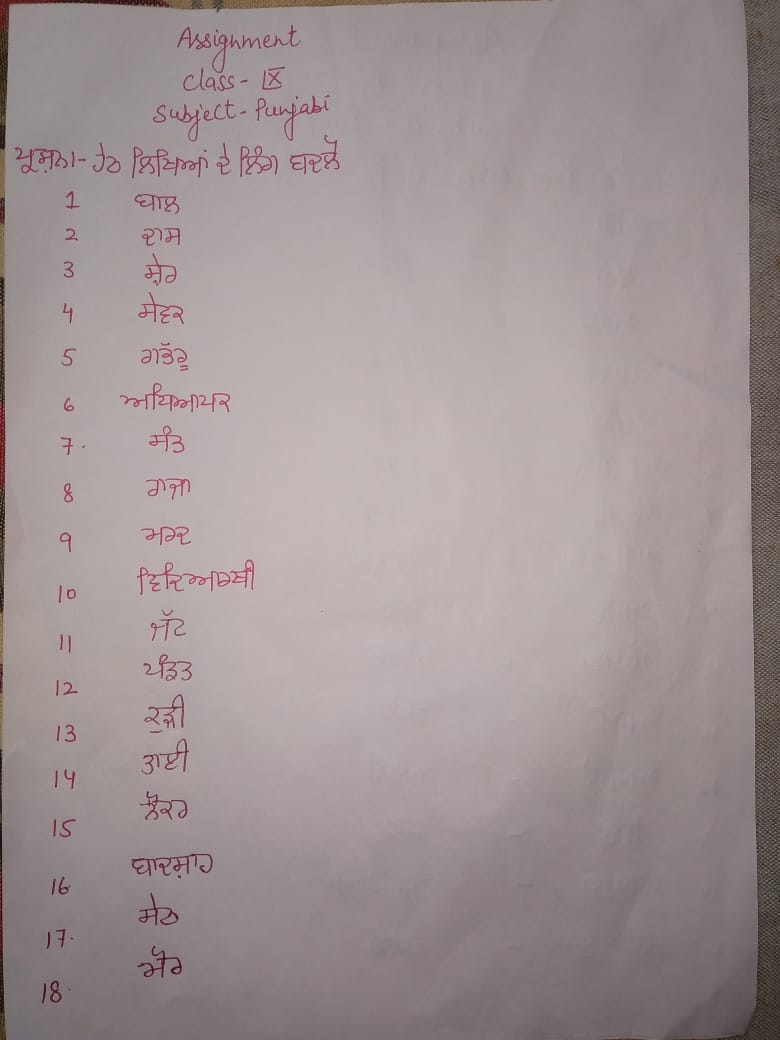 Assignment
Class - IX
Subject - Punjabi
ਪ੍ਰਸ਼ਨ1- ਹੇਠ ਲਿਖਿਆਂ ਦੇ ਲਿੰਗ ਬਦਲੋ
1 ਬਾਲ
2 ਦਾਸ
3 ਸ਼ੇਰ
4 ਸੇਵਕ
5 ਗੱਭਰੂ
6 ਅਧਿਆਪਕ
7. ਸੰਤ
8 ਰਾਜਾ
9 ਮਰਦ
10 ਵਿਦਿਆਰਥੀ
11 ਜੱਟ
12 ਪੰਡਤ
13 ਕੁੜੀ
14 ਤਾਈ
15 ਨੌਕਰ
16. ਬਾਦਸ਼ਾਹ
17. ਸੇਠ
18. ਮੋਰ